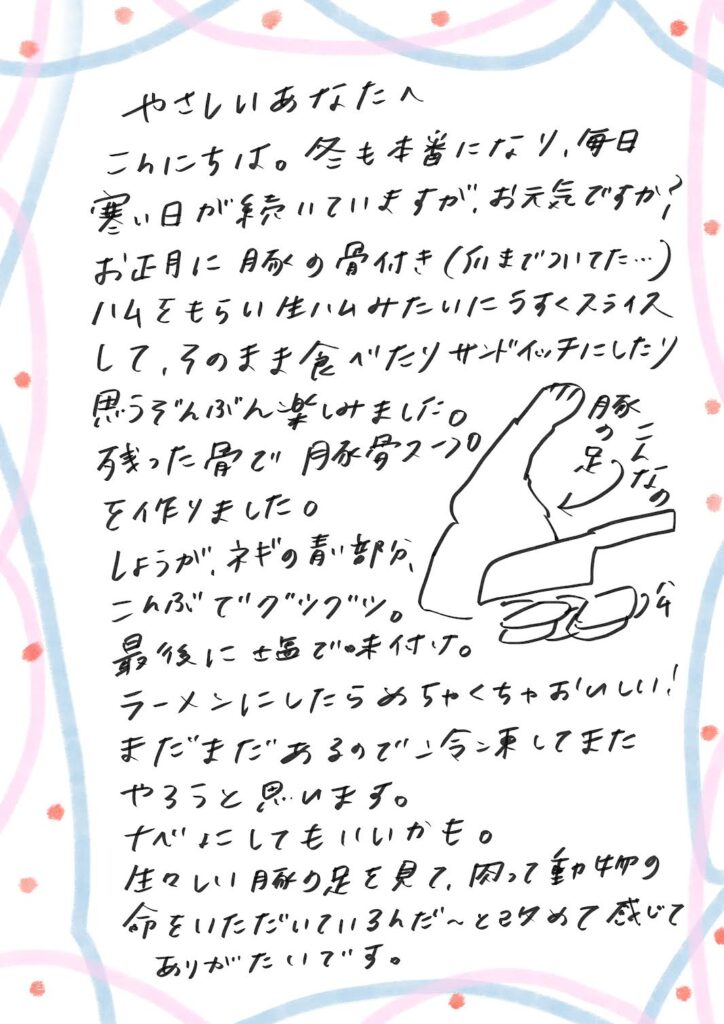 やさしいあなたへ
こんにちは。冬も本番になり、毎日
寒い日が続いていますが、お元気ですか?
お正月に豚の骨付き(爪までついてた…)
ハムをもらい生ハムみたいにうすくスライス
して、そのまま食べたりサンドイッチにしたり
思うぞんぶん楽しみました。
残った骨で豚骨スープ
を作りました。
しょうが、ネギの青い部分、
こんぶでグツグツ。
最後に塩で味付け。
ラーメンにしたらめちゃくちゃおいしい!
まだまだあるので冷凍してまた
やろうと思います。
ナベにしてもいいかも。
生々しい豚の足を見て、肉って動物の
命をいただいているんだ〜と改めて感じて
ありがたいです。
こんなの
豚の足
ハム